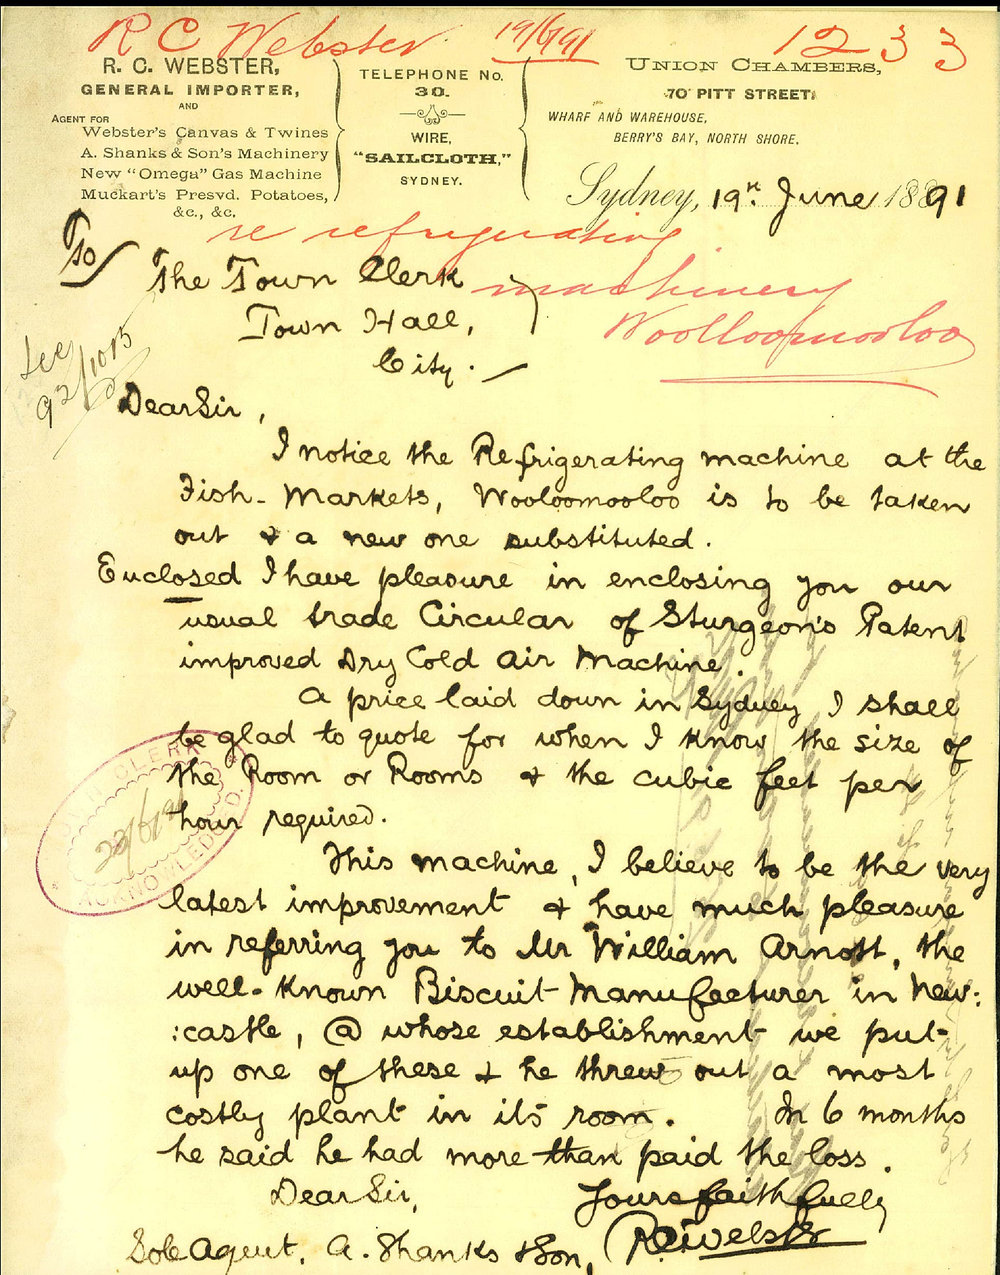 R C Webster 19/6/91 1233
R. C. WEBSTER,
GENERAL IMPORTER,
AND
AGENT FOR
Webster's Canvas & Twines
A. Shanks & Son's Machinery
New "Omega" Gas Machine
Muckart's Presvd. Potatoes,
&c., &c.
TELEPHONE No.
30.
WIRE,
"SAILCLOTH,"
SYDNEY.
UNION CHAMBERS,
70 PITT STREET,
WHARF AND WAREHOUSE,
BERRY'S BAY, NORTH SHORE.
Sydney, 19th June 1891
re refrigerating
machinery
Woolloomooloo
To
The Town Clerk
Town Hall,
City.
See
92/1015
Dear Sir,
I notice the Refrigerating machine at the
Fish-Markets, Wooloomooloo is to be taken
out & a new one substituted.
Enclosed I have pleasure in enclosing you our
usual trade Circular of Sturgeon's Patent
improved Dry Cold Air Machine.
A price laid down in Sydney I shall
be glad to quote for when I know the size of
the Room or Rooms & the cubic feet per
hour required.
TOWN CLERK
23/6/91
ACKNOWLEDGED.
This machine, I believe to be the very
latest improvement & have much pleasure
in referring you to Mr William Arnott, the
well-known Biscuit Manufacturer in New:
:castle, @ whose establishment we put
up one of these & he threw out a most
costly plant in its room. In 6 months
he said he had more than paid the loss.
Dear Sir,
Yours faithfully
R.C. Webster
Sole Agent, A. Shanks & Son,